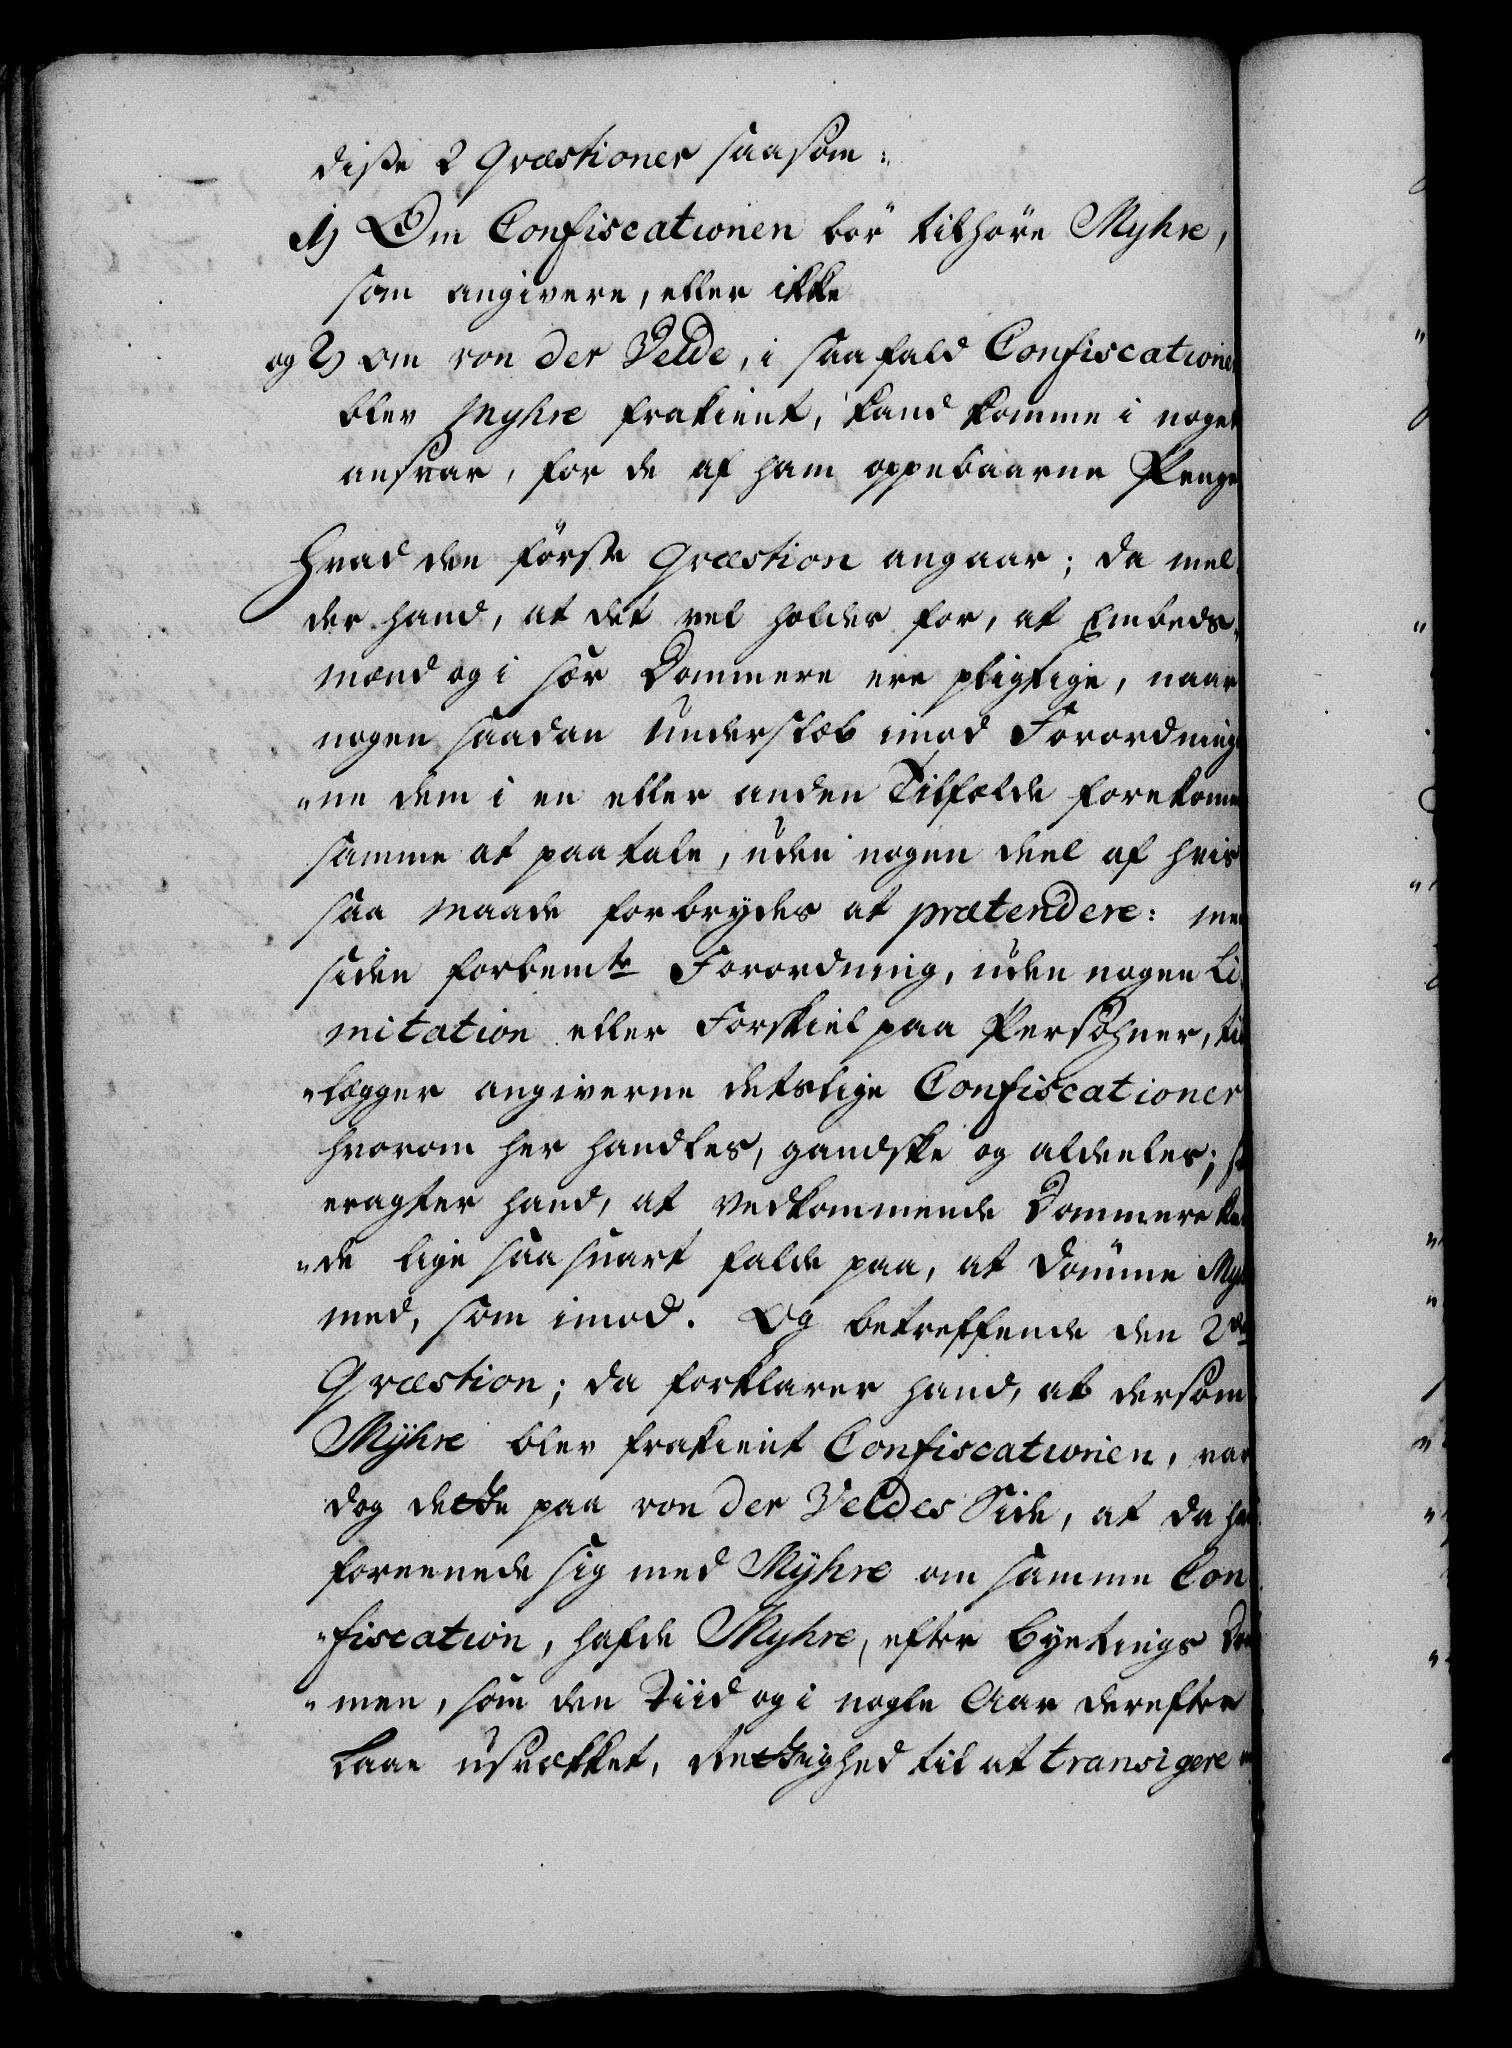 disse 2 Qvæstioner saasom:
1) Om Confiscationen bör tilhöre Myhre,
som angivere, eller ikke
og 2) om von der Velde, i saa fald Confiscationen
blev Myhre frakient, kand komme i noget
ansvar, for de af ham oppebaarne Penge
Hvad den förste Qvæstion angaar; da mel
der hand, at det vel holdes for, at Embeds-
mænd og i sær Dommere ere pligtige, naar
nogen saadan Underslæb imod Forordning
"ne dem i en eller anden Tilfælde forekomme
samme at paatale, uden nogen deel af hvis
saa maade forbrydes at prætendere: men
siden forbemte Forordning, uden nogen Li
mitation eller Forskiel paa Persohner, til
"lægger angiverne detslige Confiscationer
hvorom her handles, gandske og aldeeles; saa
eragter hand, at vedkommende Dommere kun
"de lige saa snart falde paa, at dömme Myhre
med, som imod. Og betreffende den 2den
Qvæstion; da forklarer hand, at dersom
Mÿhre blev frakient Confiscationen, var
dog dette paa von der Veldes Side, at da hand
foreenede sig med Mÿhre om samme Con
"fiscation, hafde Myhre, efter Byetings Dom
"men, som den Tiid og i nogle Aar derefter
laae usvækket, Rettighed til at transigere